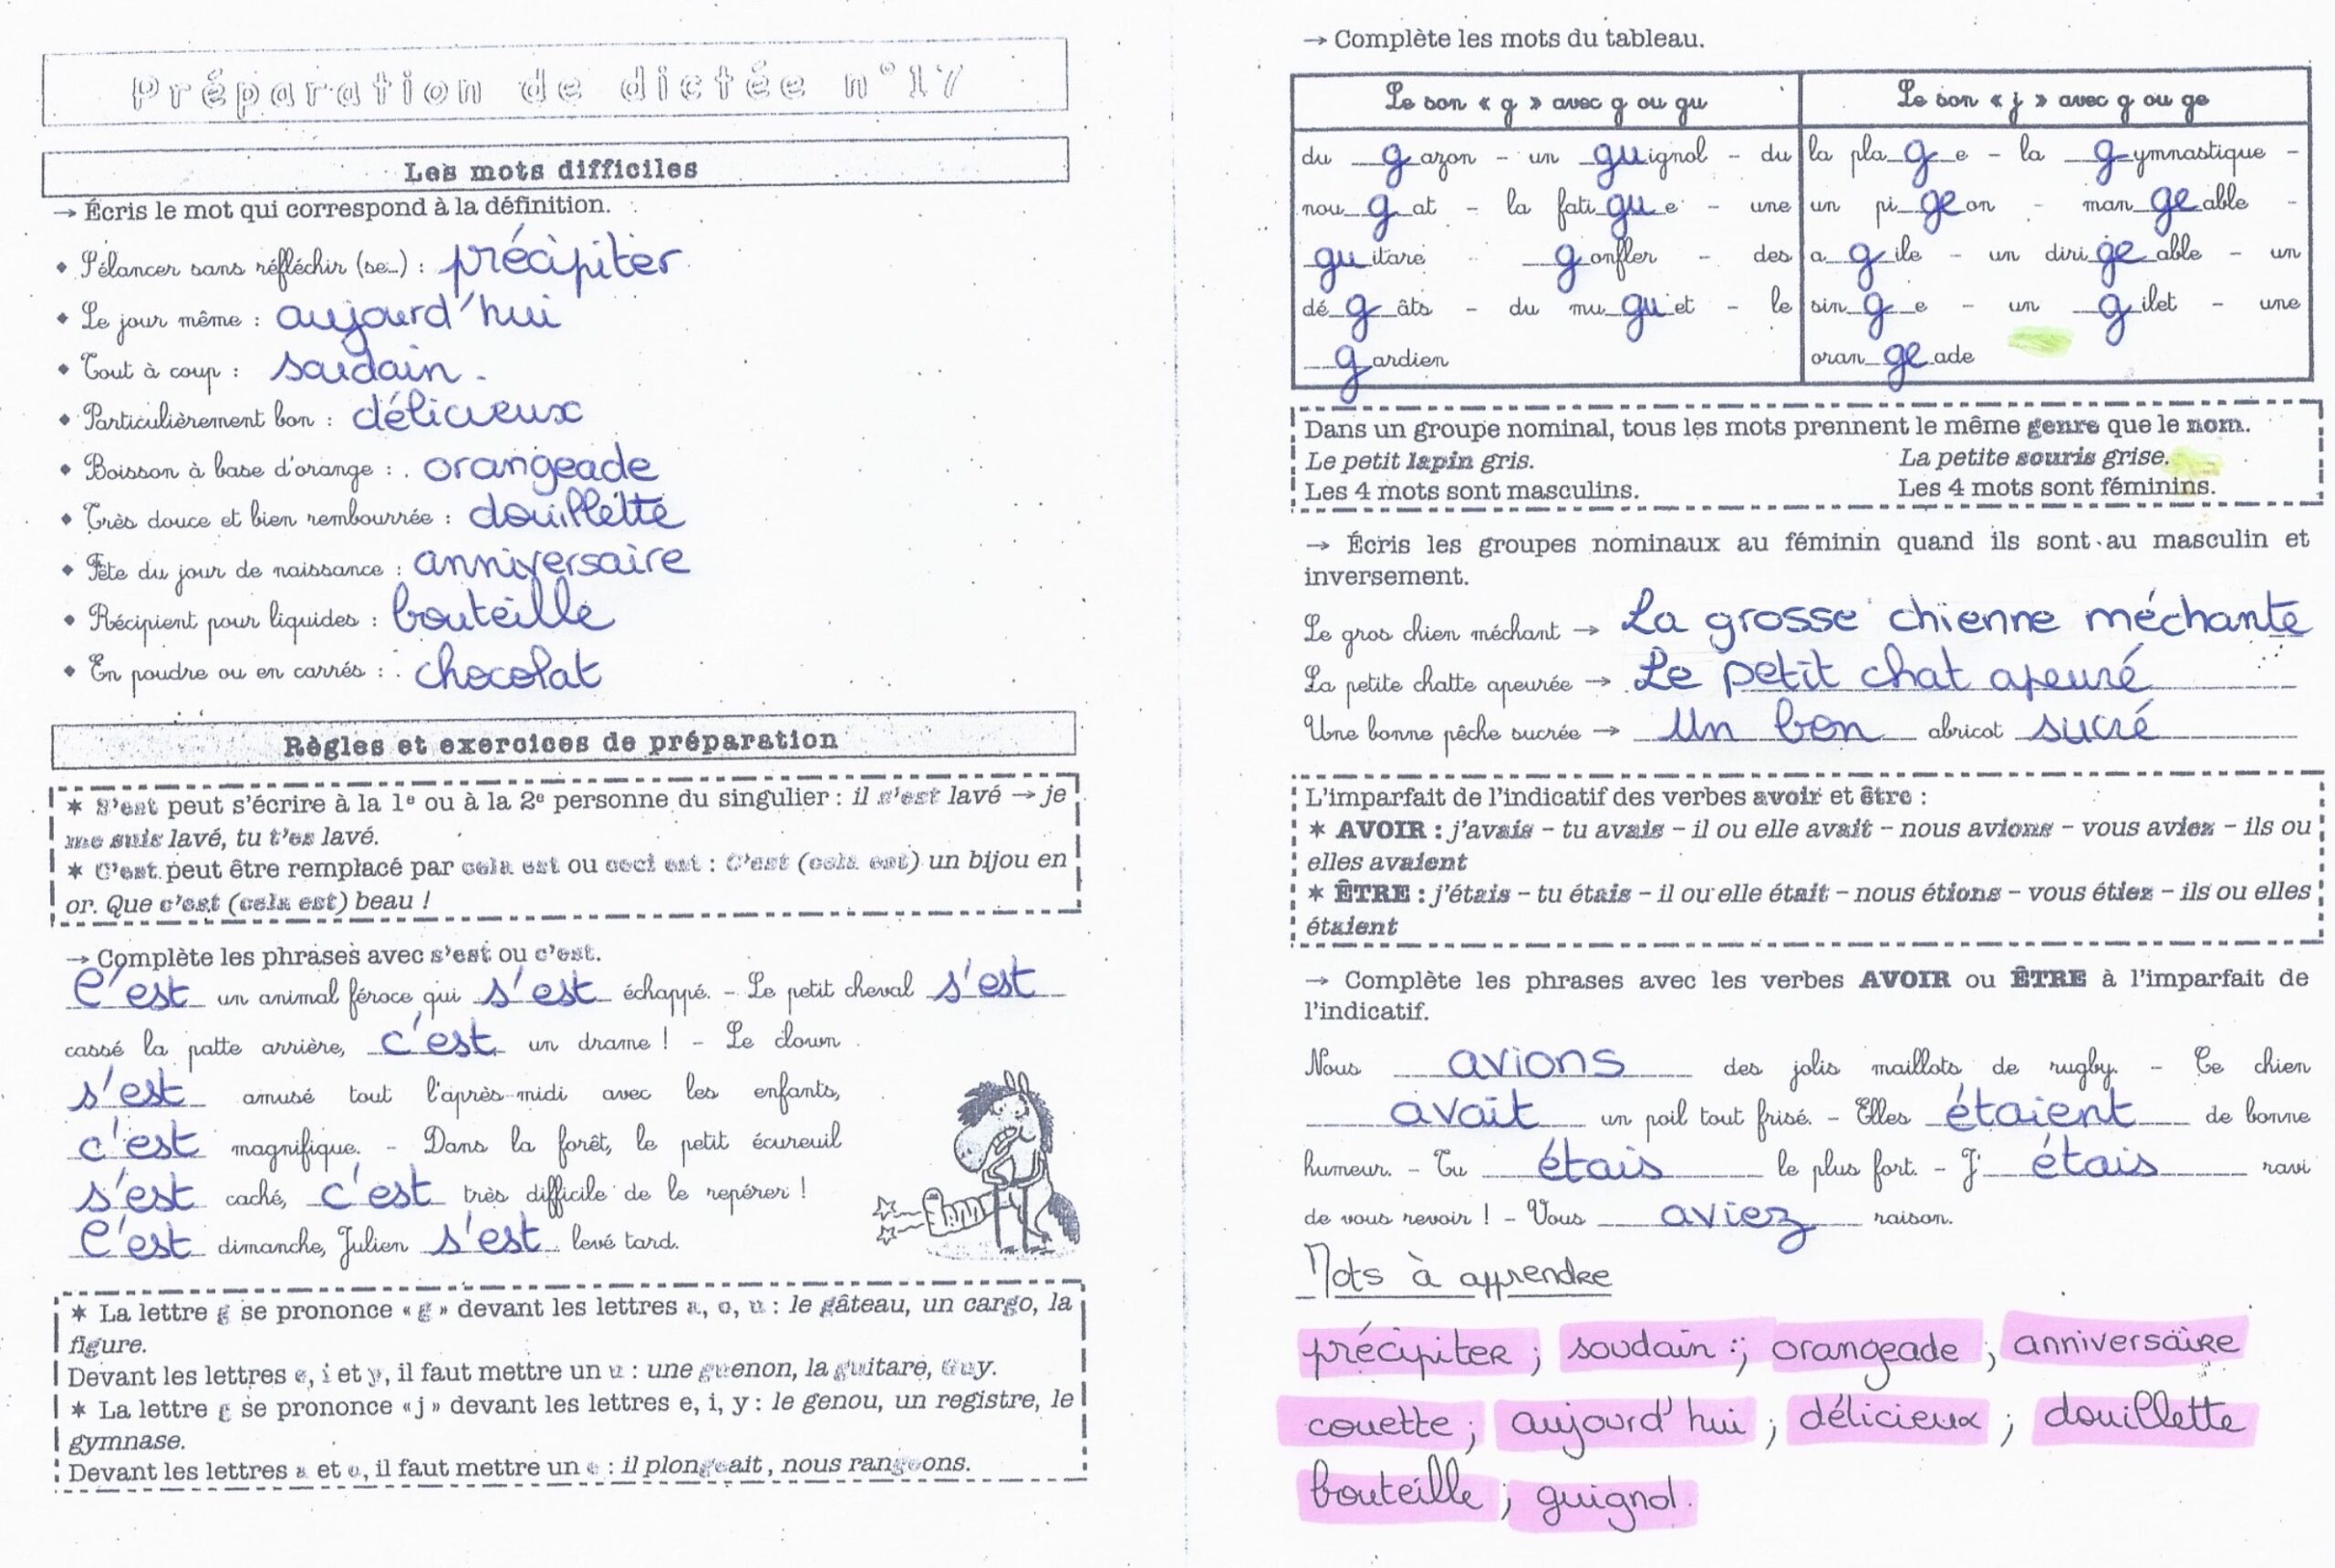 Préparation de dictée n°17
Les mots difficiles
→ Écris le mot qui correspond à la définition.
◆ S'élancer sans réfléchir (se...) : précipiter
◆ Le jour même : aujourd'hui
◆ Tout à coup : soudain.
◆ Particulièrement bon : délicieux
◆ Boisson à base d'orange : orangeade
◆ Très douce et bien rembourrée : douillette
◆ Fête du jour de naissance : anniversaire
◆ Récipient pour liquides : bouteille
◆ En poudre ou en carrés : chocolat
Règles et exercices de préparation
✶ S'est peut s'écrire à la 1e ou à la 2e personne du singulier : il s'est lavé → je
me suis lavé, tu t'es lavé.
✶ C'est peut être remplacé par cela est ou ceci est : C'est (cela est) un bijou en
or. Que c'est (cela est) beau !
→ Complète les phrases avec s'est ou c'est.
C'est un animal féroce qui s'est échappé. – Le petit cheval s'est
cassé la patte arrière, c'est un drame ! – Le clown
s'est amusé tout l'après-midi avec les enfants,
c'est magnifique. – Dans la forêt, le petit écureuil
s'est caché, c'est très difficile de le repérer !
C'est dimanche, Julien s'est levé tard.
✶ La lettre g se prononce « g » devant les lettres a, o, u : le gâteau, un cargo, la
figure.
Devant les lettres e, i et y, il faut mettre un u : une guenon, la guitare, Guy.
✶ La lettre g se prononce « j » devant les lettres e, i, y : le genou, un registre, le
gymnase.
Devant les lettres a et o, il faut mettre un e : il plongeait, nous rangeons.
→ Complète les mots du tableau.
Le son « g » avec g ou gu
du gazon – un guignol – du
nougat – la fatigue – une
guitare – gonfler – des
dégâts – du muguet – le
gardien
Le son « j » avec g ou ge
la plage – la gymnastique –
un pigeon – mangeable –
agile – un dirigeable – un
singe – un gilet – une
orangeade
Dans un groupe nominal, tous les mots prennent le même genre que le nom.
Le petit lapin gris. La petite souris grise.
Les 4 mots sont masculins. Les 4 mots sont féminins.
→ Écris les groupes nominaux au féminin quand ils sont au masculin et
inversement.
Le gros chien méchant → La grosse chienne méchante
La petite chatte apeurée → Le petit chat apeuré
Une bonne pêche sucrée → Un bon abricot sucré
L'imparfait de l'indicatif des verbes avoir et être :
✶ AVOIR : j'avais – tu avais – il ou elle avait – nous avions – vous aviez – ils ou
elles avaient
✶ ÊTRE : j'étais – tu étais – il ou elle était – nous étions – vous étiez – ils ou elles
étaient
→ Complète les phrases avec les verbes AVOIR ou ÊTRE à l'imparfait de
l'indicatif.
Nous avions des jolis maillots de rugby. – Ce chien
avait un poil tout frisé. – Elles étaient de bonne
humeur. – Tu étais le plus fort. – J' étais ravi
de vous revoir ! – Vous aviez raison.
Mots à apprendre
précipiter ; soudain ; orangeade ; anniversaire
couette ; aujourd'hui ; délicieux ; douillette
bouteille ; guignol.